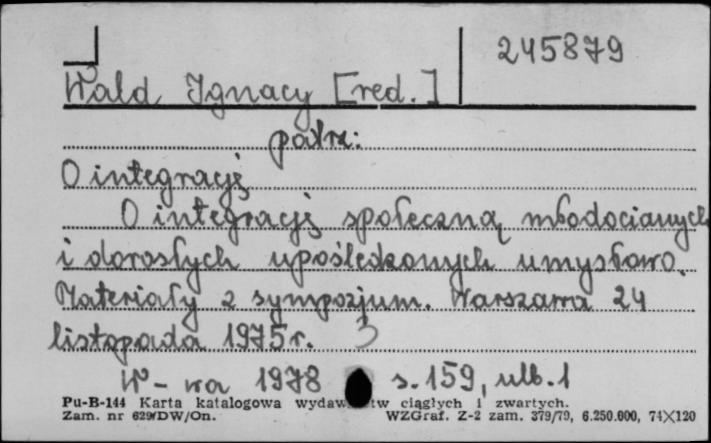 245879
Wald Ignacy [red.]
patrz:
O integrację
O integrację społeczną młodocianych
i dorosłych upośledzonych umysłowo.
Materiały z sympozjum. Warszawa 24
listopada 1975r. 3
W-wa 1978 s.159, ulb.1
Pu-B-144 Karta katalogowa wydaw tw ciągłych i zwartych.
Zam. nr 629/DW/On. WZGraf. Z-2 zam. 379/79, 6.250.000, 74×120